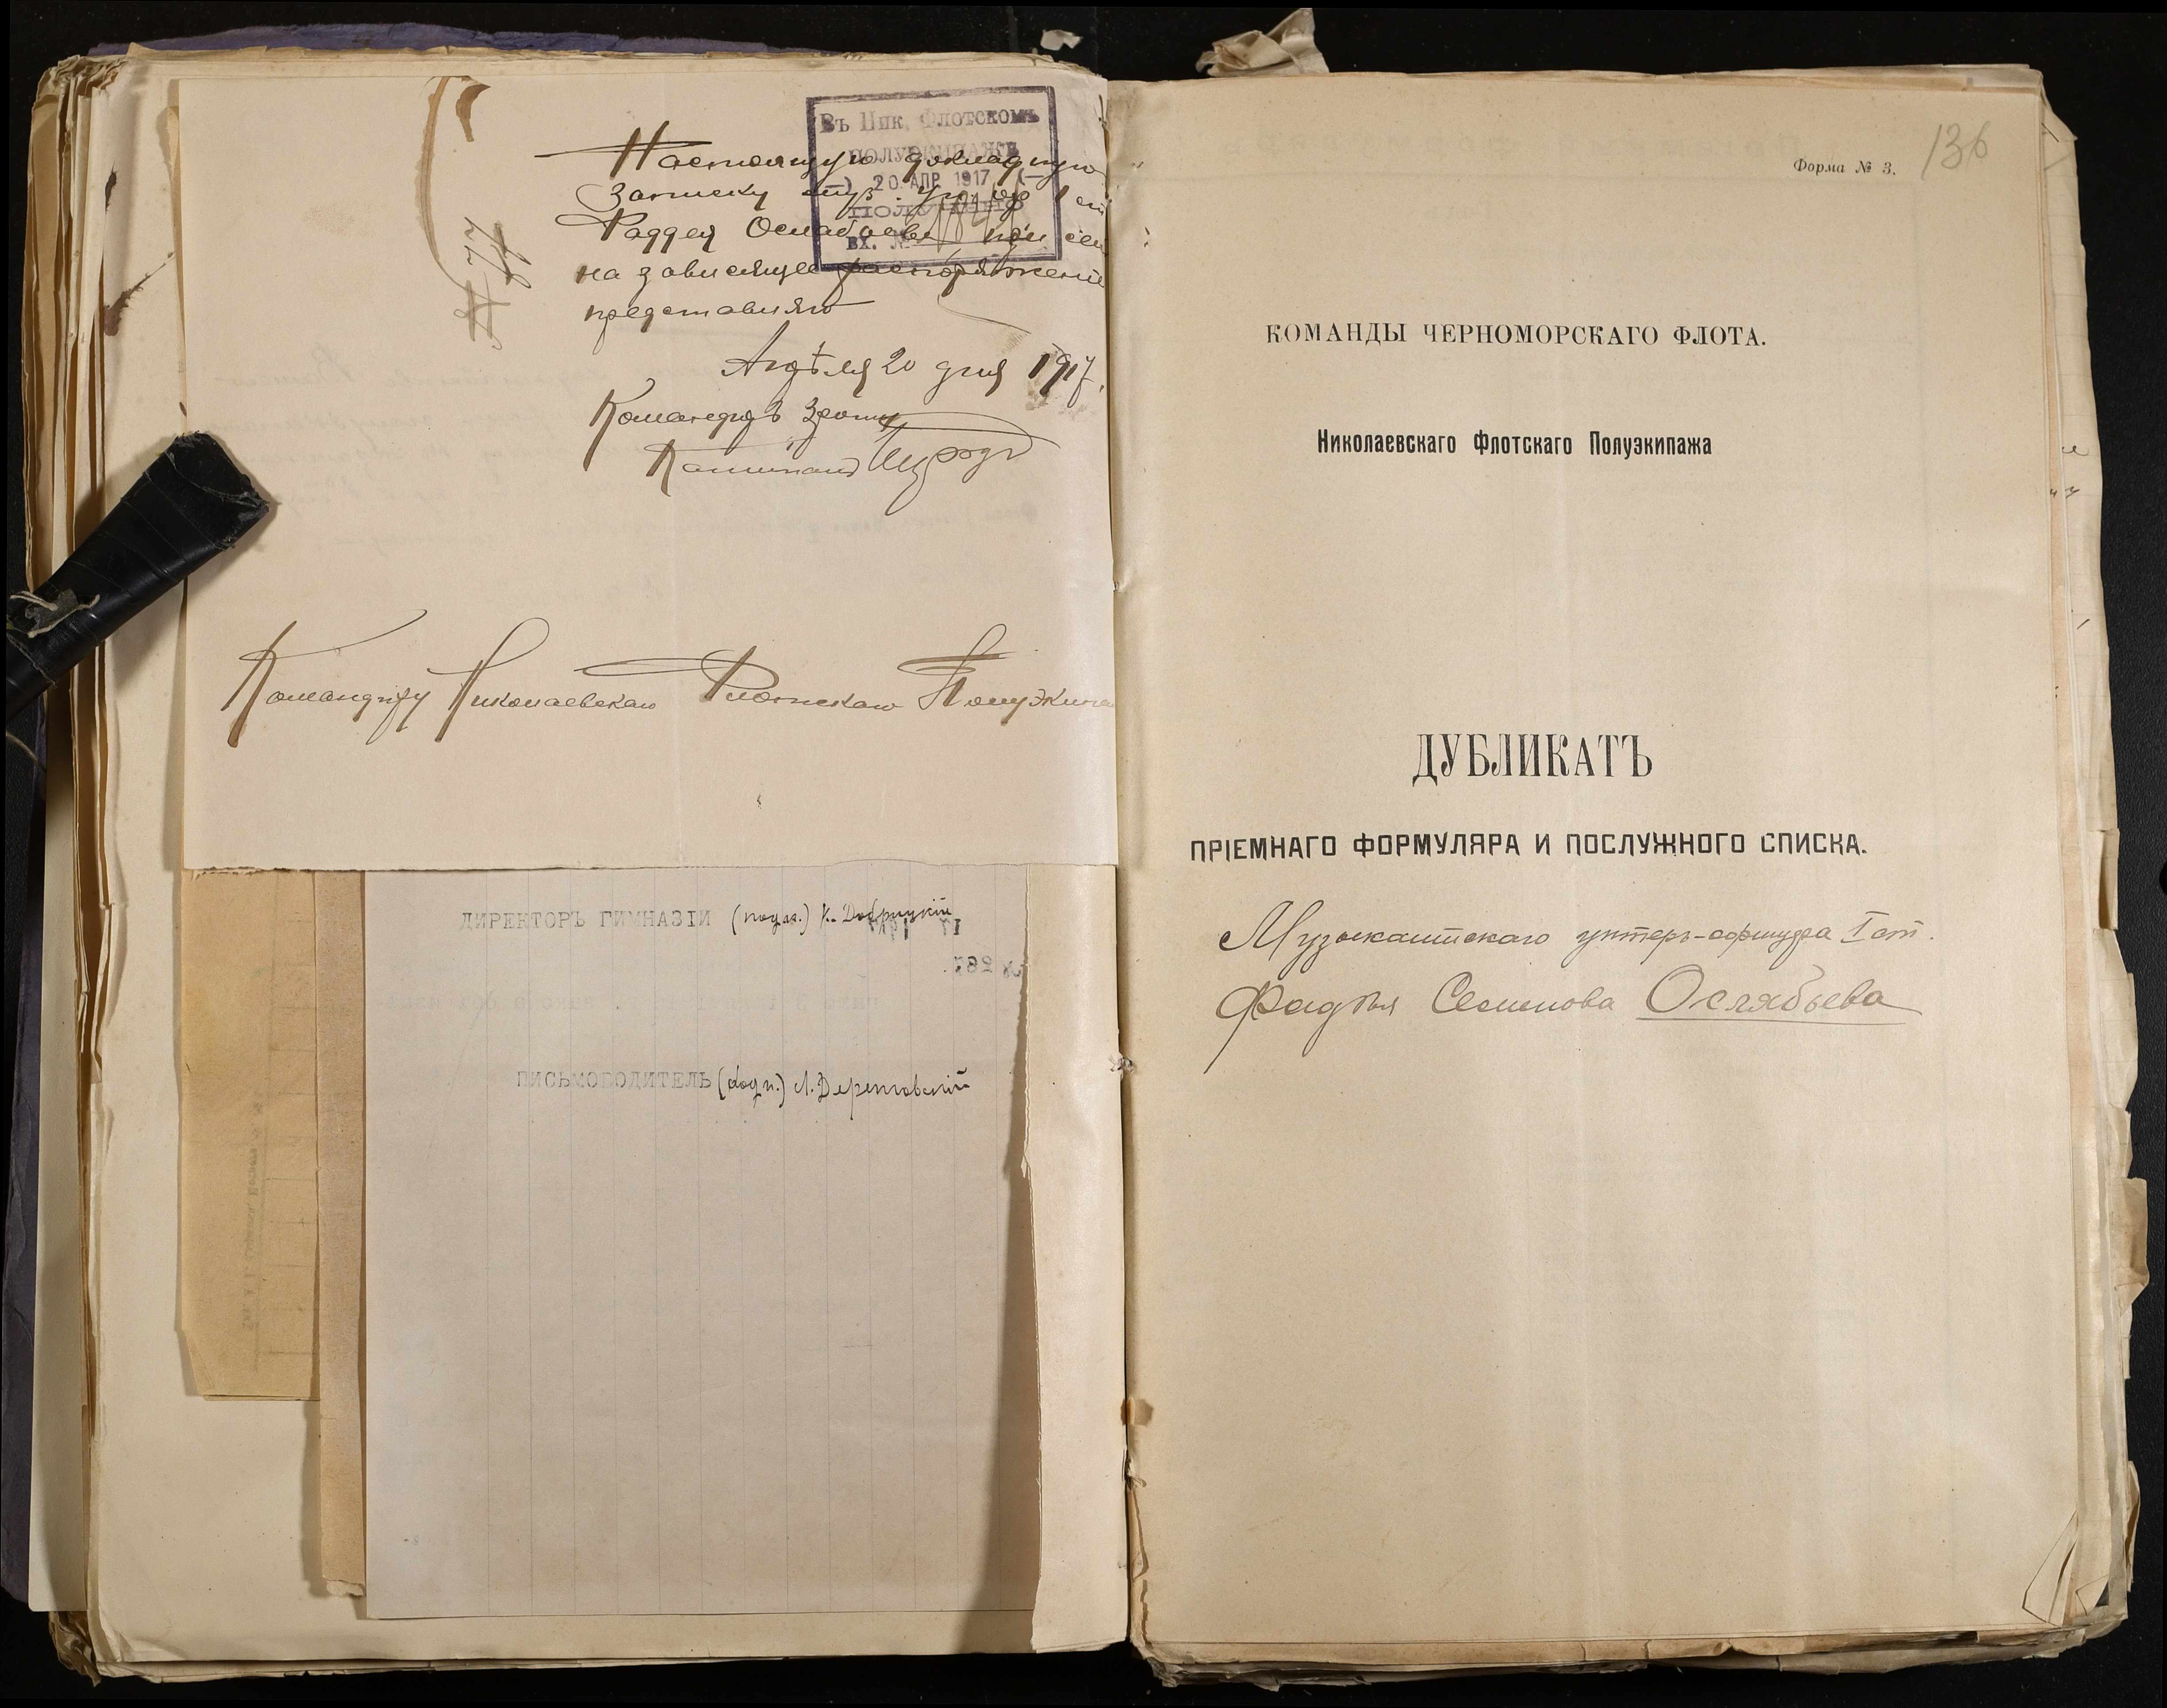 Въ Ник. Флотскомъ
ПОЛУЭКИПАЖѢ
20. АПР. 1917
ПОЛУЧЕНО
ВХ. №
Настоящую докладную
записку муз. ун. оф. 1 ст
Фаддея Ослабьева при сем
на зависящее распоряжение
представляю
№ 77
Апрѣля 20 дня 1917.
Командиръ роты
Капитанъ
Командиру Николаевскаго Флотскаго Полуэкипа
ДИРЕКТОРЪ ГИМНАЗІИ (подп.) К. Добрицкій
№ 287.
ПИСЬМОВОДИТЕЛЬ (подп.)
136
Форма № 3.
КОМАНДЫ ЧЕРНОМОРСКАГО ФЛОТА.
Николаевскаго Флотскаго Полуэкипажа
ДУБЛИКАТЪ
ПРІЕМНАГО ФОРМУЛЯРА И ПОСЛУЖНОГО СПИСКА.
Музыкантскаго унтеръ-офицера I ст.
Фадѣя Семенова Ослябьева